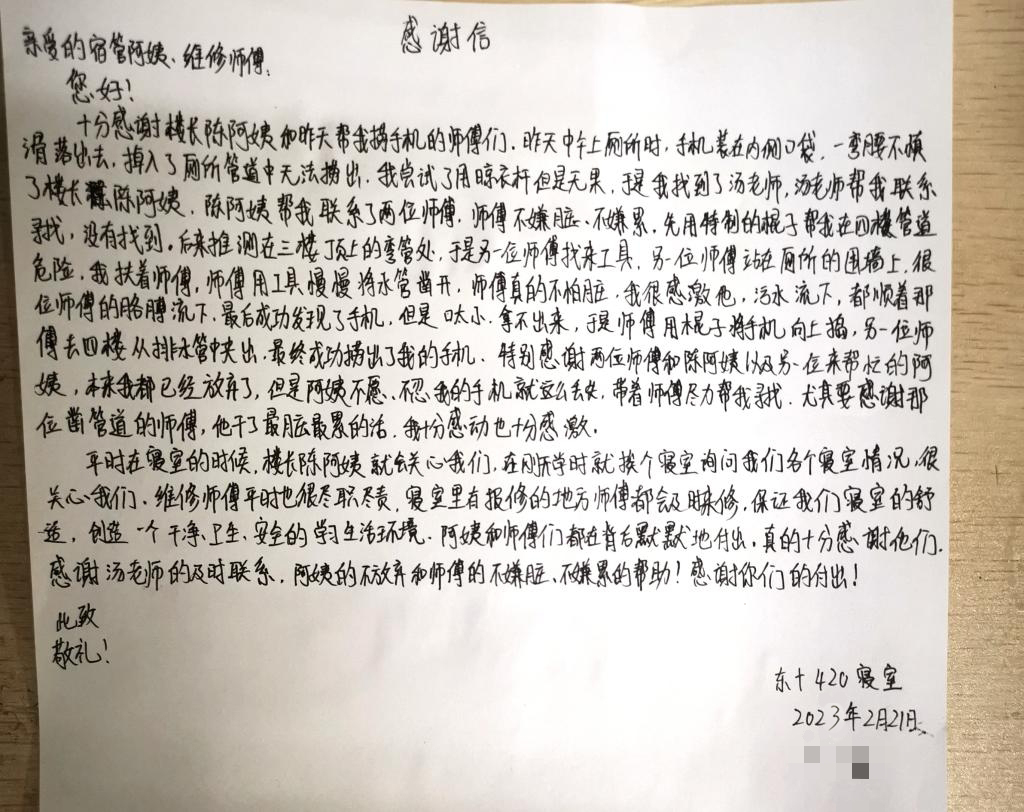 感谢信
亲爱的宿管阿姨、维修师傅：
您好！
十分感谢楼长陈阿姨和昨天帮我捞手机的师傅们。昨天中午上厕所时，手机装在内侧口袋，一弯腰不慎
滑落出去，掉入了厕所管道中无法捞出，我尝试了用晾衣杆但是无果，于是我找到了汤老师，汤老师帮我联系
了楼长陈阿姨，陈阿姨帮我联系了两位师傅，师傅不嫌脏、不嫌累，先用特制的棍子帮我在四楼管道
寻找，没有找到，后来推测在三楼顶上的弯管处，于是另一位师傅找来工具，另一位师傅站在厕所的围墙上，很
危险，我扶着师傅，师傅用工具慢慢将水管凿开，师傅真的不怕脏，我很感激他，污水流下，都顺着那
位师傅的胳膊流下，最后成功发现了手机，但是口太小，拿不出来，于是师傅用棍子将手机向上捣，另一位师
傅去四楼从排水管中夹出，最终成功捞出了我的手机。特别感谢两位师傅和陈阿姨以及另一位来帮忙的阿
姨，本来我都已经放弃了，但是阿姨不愿、不忍我的手机就这么丢失，带着师傅尽力帮我寻找。尤其要感谢那
位凿管道的师傅，他干了最脏最累的活，我十分感动也十分感激。
平时在寝室的时候，楼长陈阿姨就会关心我们，在刚开学时就挨个寝室询问我们各个寝室情况，很
关心我们，维修师傅平时也很尽职尽责，寝室里有报修的地方师傅都会及时来修，保证我们寝室的舒
适，创造一个干净、卫生、安全的学习生活环境。阿姨和师傅们都在背后默默地付出，真的十分感谢他们。
感谢汤老师的及时联系，阿姨的不放弃和师傅的不嫌脏、不嫌累的帮助！感谢你们的付出！
此致
敬礼！
东十420寝室
2023年2月21日